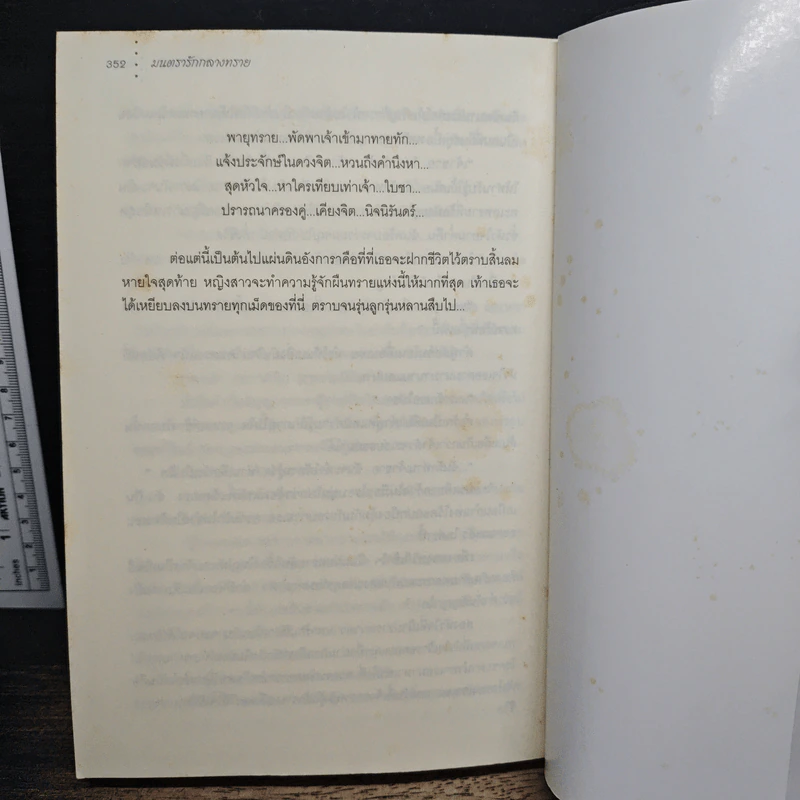 352 มนตรารักกลางทราย
พายุทราย...พัดพาเจ้าเข้ามาทายทัก...
แจ้งประจักษ์ในดวงจิต...หวนถึงคำนึงหา...
สุดหัวใจ...หาใครเทียบเท่าเจ้า...ใบชา...
ปรารถนาครองคู่...เคียงจิต...นิจนิรันดร์...
ต่อแต่นี้เป็นต้นไปแผ่นดินอังการาคือที่ที่เธอจะฝากชีวิตไว้ตราบสิ้นลม
หายใจสุดท้าย หญิงสาวจะทำความรู้จักผืนทรายแห่งนี้ให้มากที่สุด เท้าเธอจะ
ได้เหยียบลงบนทรายทุกเม็ดของที่นี่ ตราบจนรุ่นลูกรุ่นหลานสืบไป...
1 2 3 4 5 6 7 8
inches 1